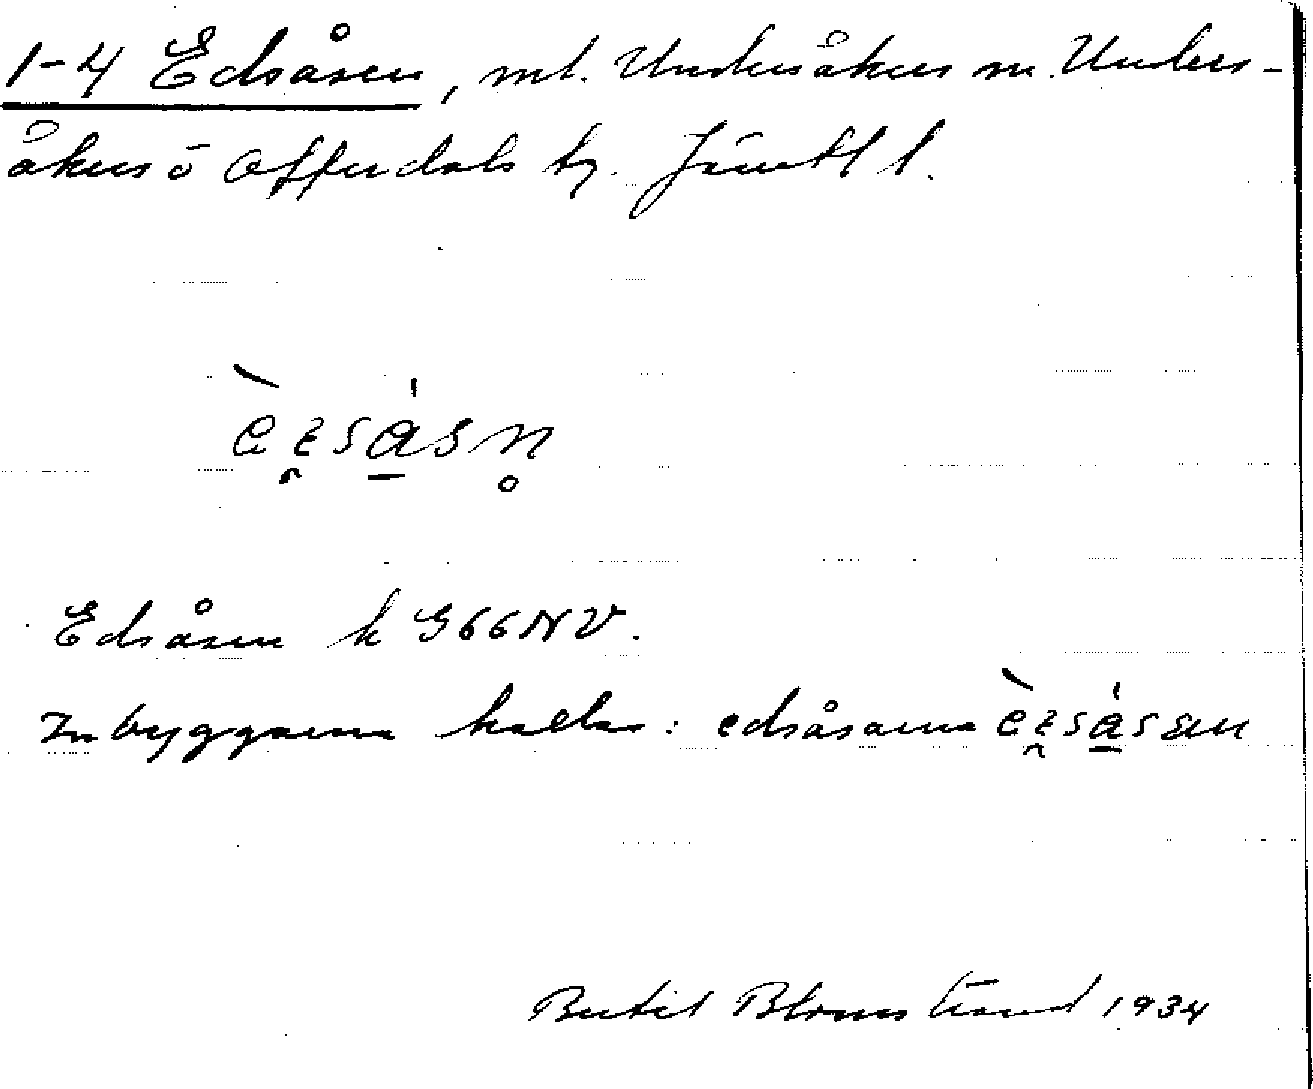 1-4 Edsåsen, ml. Undersåkers sn. Under-
såkers o Offerdals tg. Jämtl l.
Edsåsen k G66NV.
Inbyggarna kallas: edsåsarna
Bertil Blomstrand 1934